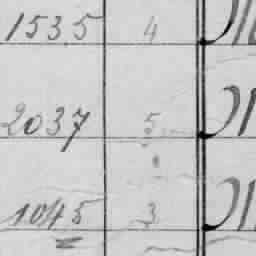 1535 4
2037 5
1045 3